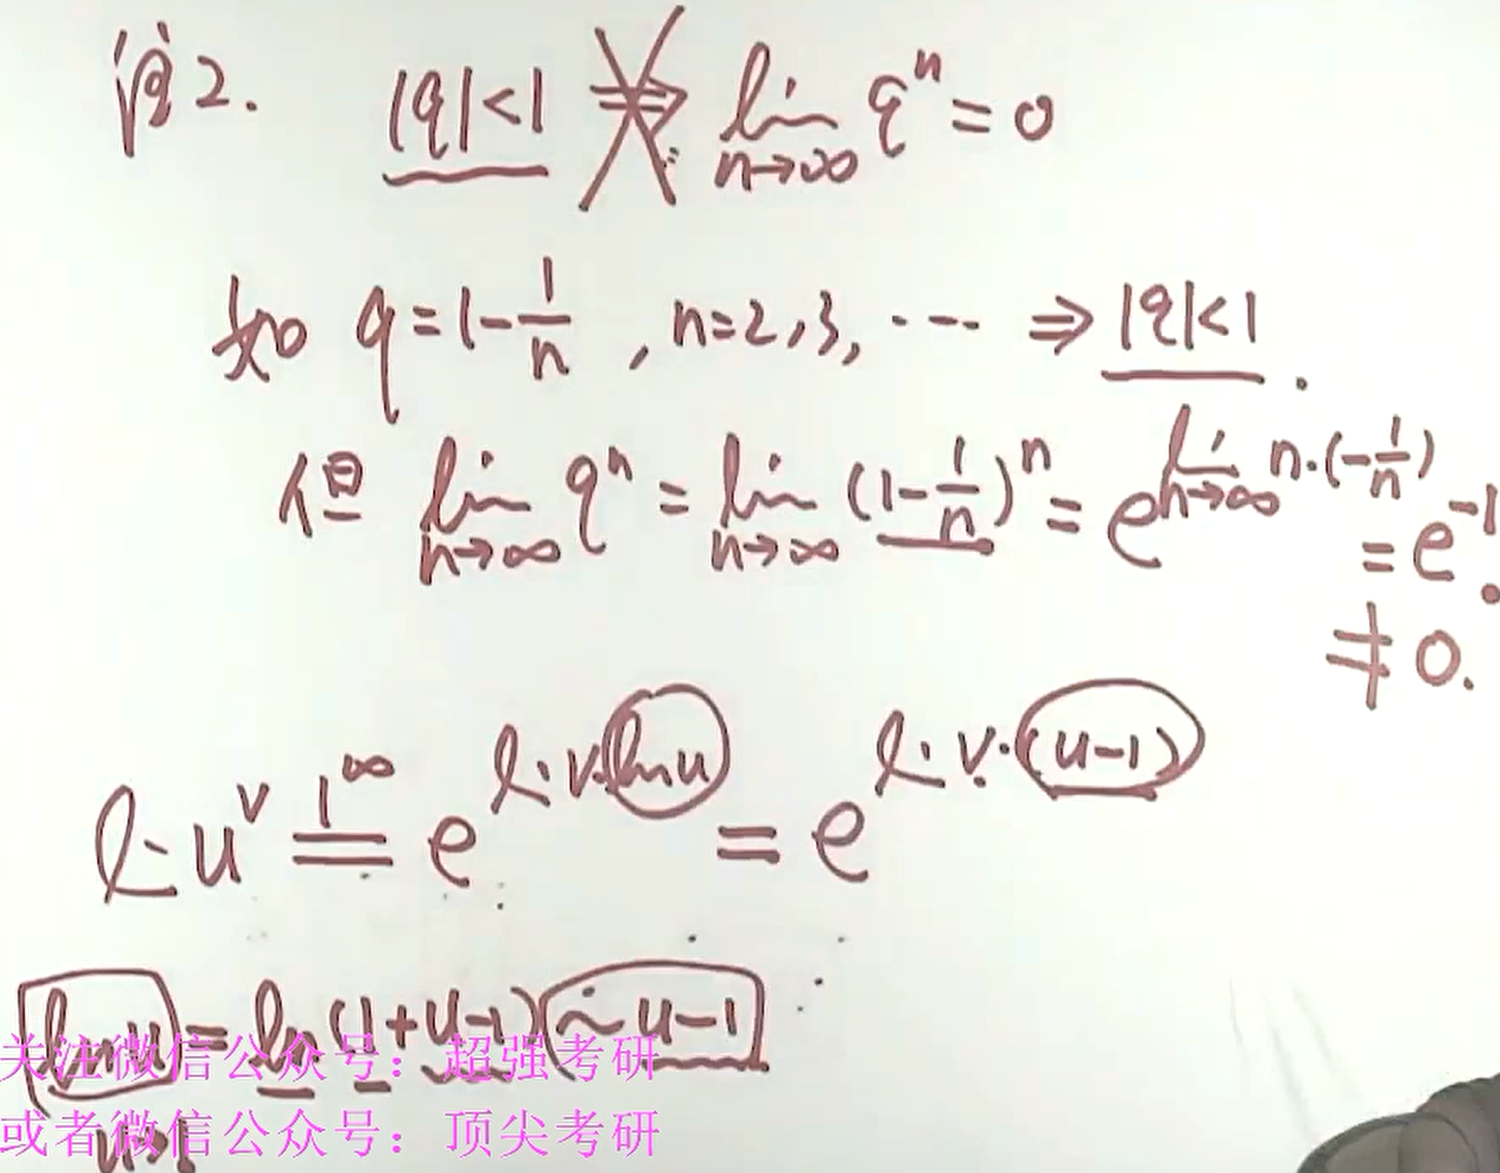 注2. |q|<1 ⇏ lim_{n→∞} q^n = 0
如 q=1-1/n, n=2,3,… ⇒ |q|<1.
但 lim_{n→∞} q^n = lim_{n→∞} (1-1/n)^n = e^{lim_{n→∞} n·(-1/n)}
= e^{-1}.
≠ 0.
l· u^v =^{1^∞} e^{l· v·lnu} = e^{l· v·(u-1)}
lnu = ln(1+u-1) ~ u-1
关注微信公众号：超强考研
u→1
或者微信公众号：顶尖考研